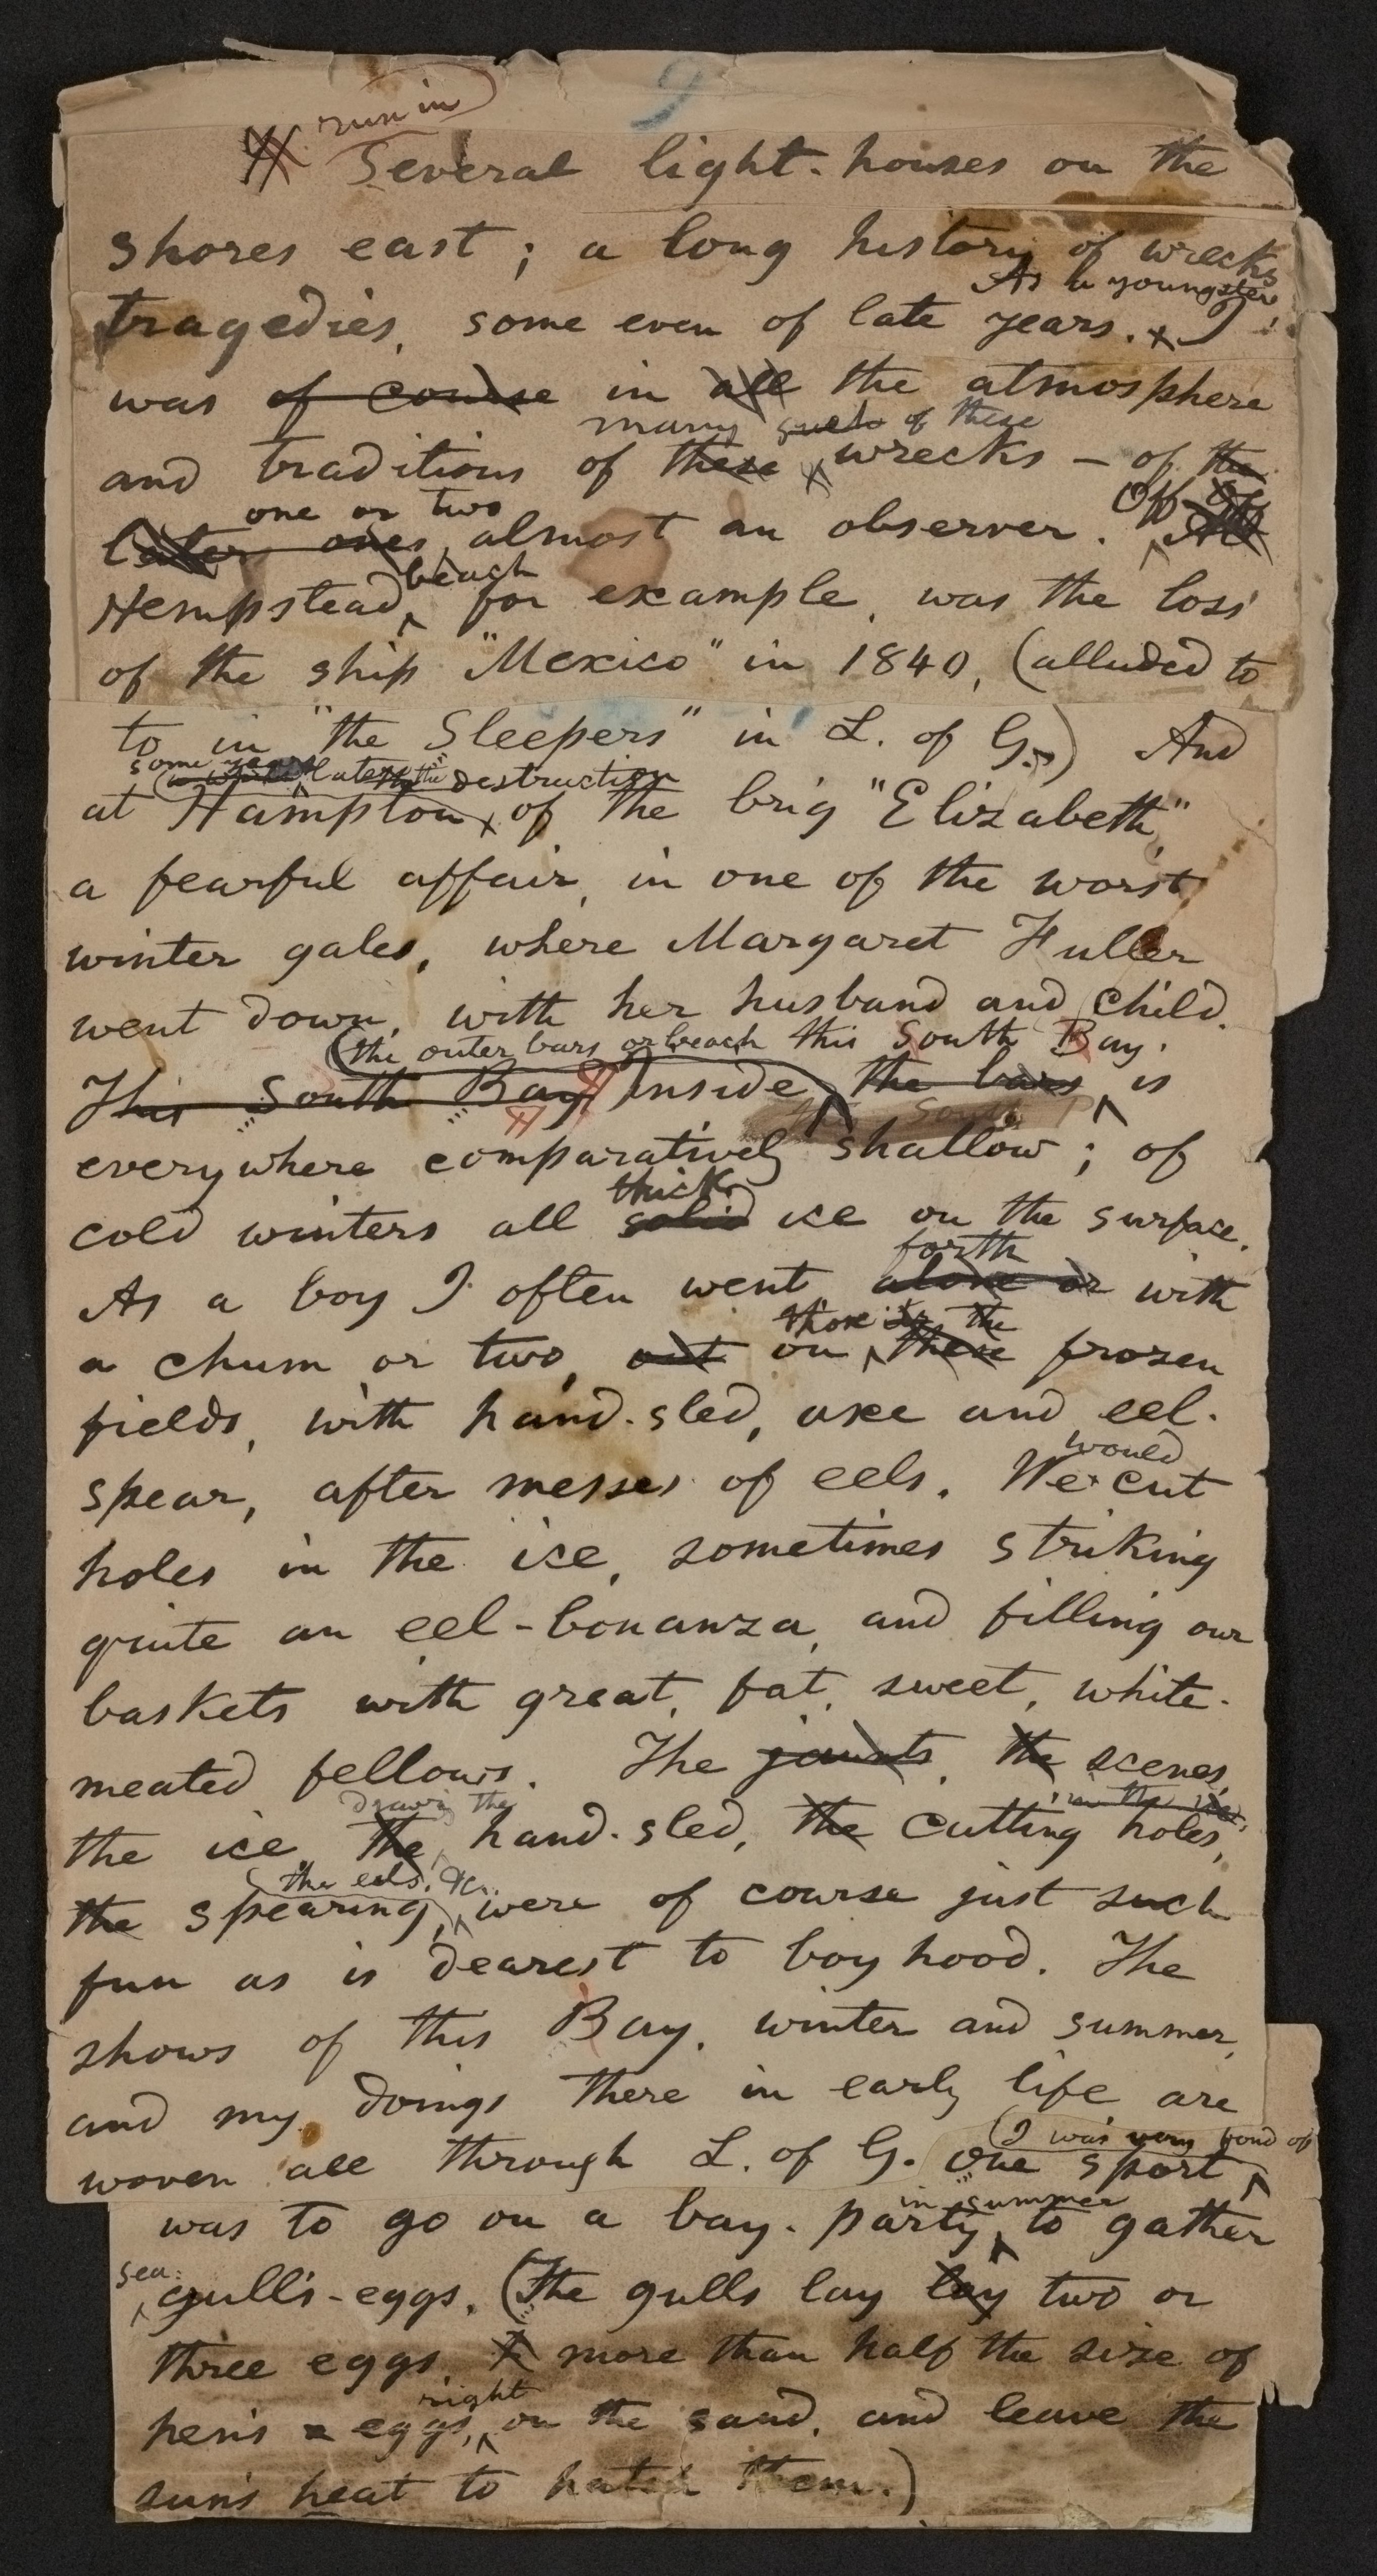 9
run in
Several light-houses on the
shores east; a long history of wrecks
As a youngster,
tragedies, some even of late years. I
was of course in all the atmosphere
many such of these
and traditions of these wrecks — of the
one or two Off of
later ones, almost an observer.
beach
Hempstead, for example, was the loss
of the ship "Mexico" in 1840, (alluded to
to in "the Sleepers" in L. of G.) And
some years later the destruction
at Hampton, of the brig "Elizabeth,"
a fearful affair, in one of the worst
winter gales, where Margaret Fuller
went down, with her husband and child.
(the outer bars or beach this South Bay.
This South Bay Inside the bars is
everywhere comparatively shallow; of
thick
cold winters all solid ice on the surface.
forth
As a boy I often went alone or with
those the
a chum or two, out on these frozen
fields, with hand-sled, axe and eel-
would
spear, after messes of eels. We cut
holes in the ice, sometimes striking
quite an eel-bonanza, and filling our
baskets with great, fat, sweet, white-
meated fellows. The jaunts, the scenes,
drawing the in the ice,
the ice, the hand-sled, the cutting holes,
the eels, &c.
the spearing, were of course just such
fun as is dearest to boyhood. The
shows of this Bay, winter and summer,
and my doings there in early life are
(I was very fond of
woven all through L. of G. One sport
in summer
was to go on a bay-party to gather
sea-
gull's-eggs. (The gulls lay lay two or
three eggs, more than half the size of
right
hen's eggs, on the sand, and leave the
sun's heat to hatch them.)